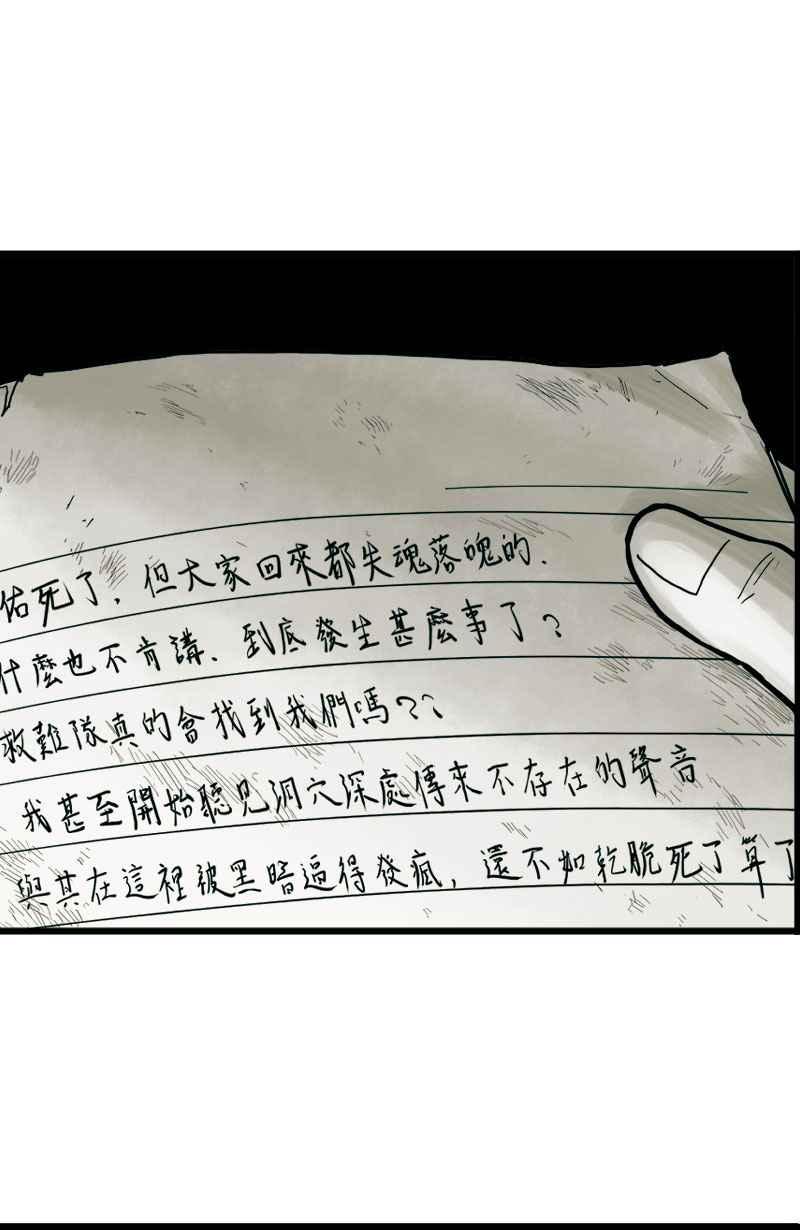 佑死了，但大家回來都失魂落魄的．
什麼也不肯講、到底發生甚麼事了？
救難隊真的會找到我們嗎？？
我甚至開始聽見洞穴深處傳來不存在的聲音
與其在這裡被黑暗逼得發瘋，還不如乾脆死了算了